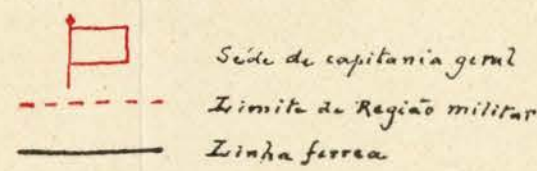 Séde de capitania geral
Limite de Região militar
Linha ferrea